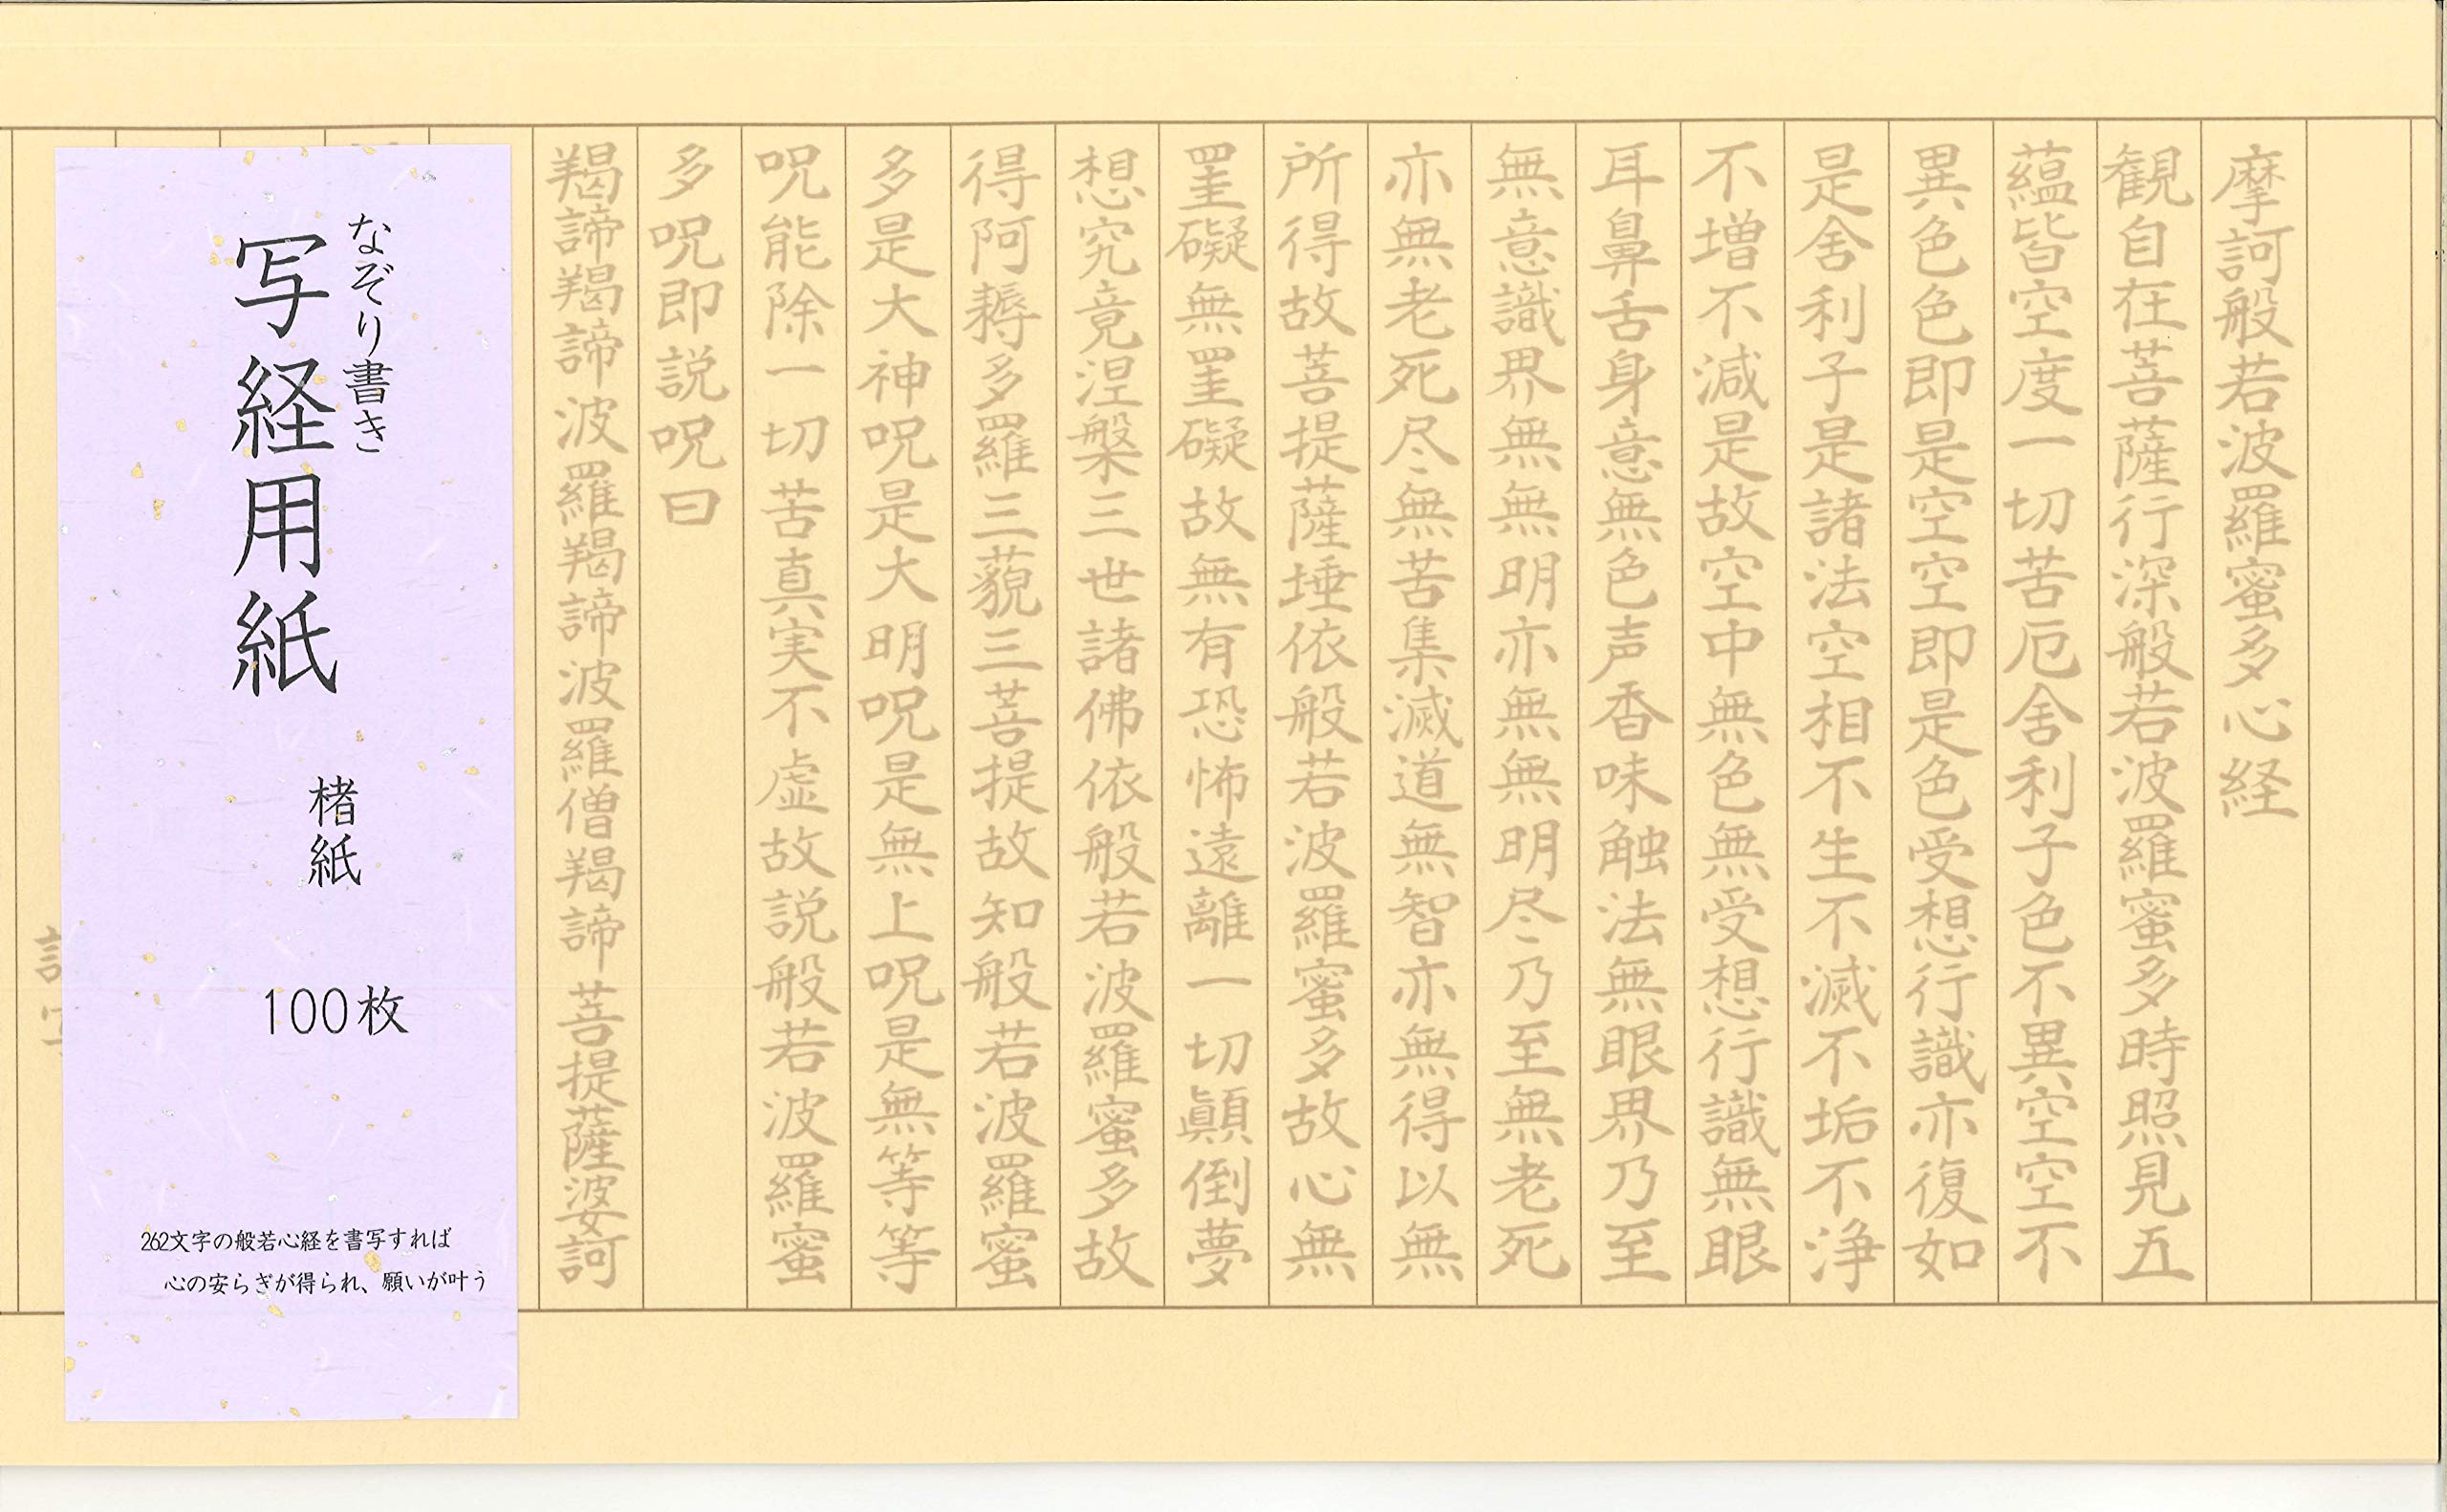 摩訶般若波羅蜜多心経
観自在菩薩行深般若波羅蜜多時照見五
蘊皆空度一切苦厄舎利子色不異空空不
異色色即是空空即是色受想行識亦復如
是舎利子是諸法空相不生不滅不垢不浄
不増不減是故空中無色無受想行識無眼
耳鼻舌身意無色声香味触法無眼界乃至
無意識界無無明亦無無明尽乃至無老死
亦無老死尽無苦集滅道無智亦無得以無
所得故菩提薩埵依般若波羅蜜多故心無
罣礙無罣礙故無有恐怖遠離一切顛倒夢
想究竟涅槃三世諸佛依般若波羅蜜多故
得阿耨多羅三藐三菩提故知般若波羅蜜
多是大神呪是大明呪是無上呪是無等等
呪能除一切苦真実不虚故説般若波羅蜜
多呪即説呪曰
羯諦羯諦波羅羯諦波羅僧羯諦菩提薩婆訶
なぞり書き
写経用紙
楮紙
100枚
262文字の般若心経を書写すれば
心の安らぎが得られ、願いが叶う